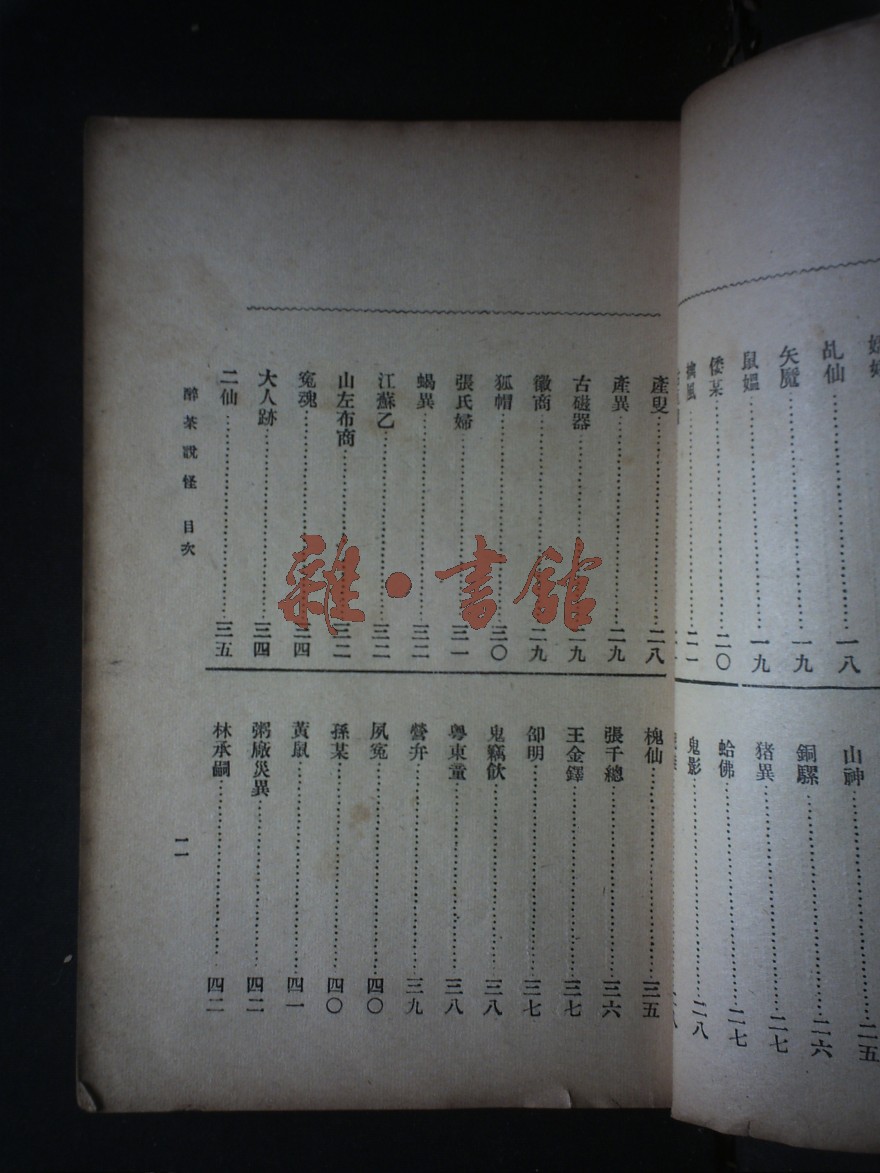 乩仙 一八
矢魔 一九
鼠媼 一九
倭某 二〇
擒風 二一
山神 二五
銅騾 二六
猪異 二七
蛤佛 二七
鬼影 二八
產叟 二八
產異 二九
古磁器 二九
徽商 二九
狐帽 三〇
張氏婦 三一
蝎異 三二
江蘇乙 三二
山左布商 三二
寃魂 三四
大人跡 三四
二仙 三五
槐仙 三五
張千總 三六
王金鐸 三七
卻明 三七
鬼竊飲 三八
粵東童 三八
營弁 三九
夙寃 四〇
孫某 四〇
黃鼠 四一
粥廠災異 四二
林承嗣 四二
醉茶說怪 目次
二
雜·書館